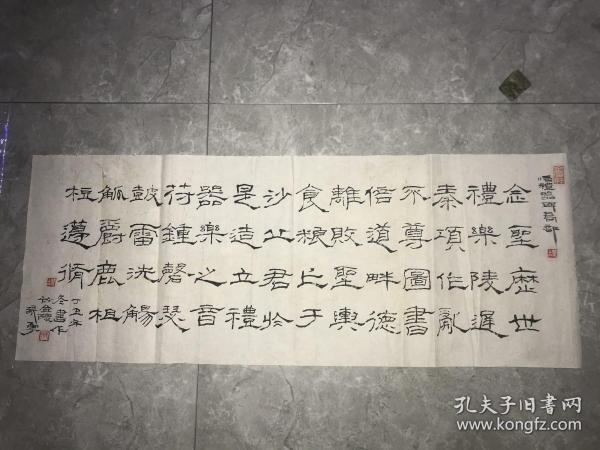 臨禮器碑局部
念聖歷世
禮樂陵遲
秦項作亂
不尊圖書
倍道畔德
離敗聖輿
食糧亡于
沙丘君於
是造立禮
器樂之音
符鍾磬瑟
鼓雷洗觴
觚爵鹿柤
梪籩脩
丁丑年
冬書作
於金陵
孔夫子旧书网
www.kongfz.com